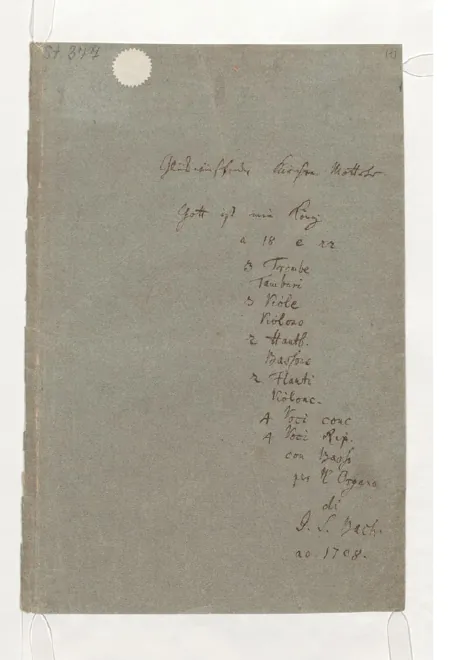 St 377
(1)
Glückwünschende Kirchen Motteto
Gott ist mein König
a 18 e 22
3 Trombe
Tamburi
3 Viole
Violono
2 Hautb.
Bassono
2 Flauti
Violonc.
4 Voci conc
4 Voci Rip.
con Basso
per l' Organo
di
J. S. Bach.
ao. 1708.